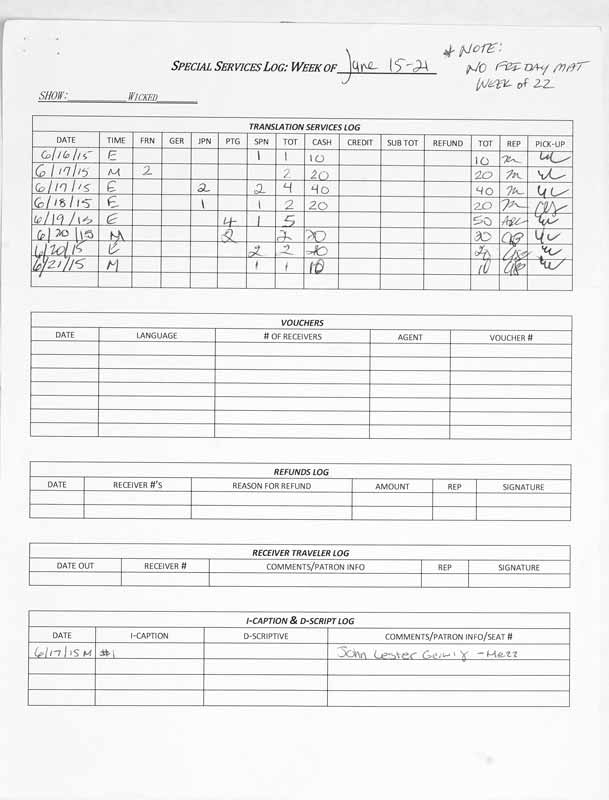 * NOTE:
NO FRIDAY MAT
WEEK of 22
SPECIAL SERVICES LOG: WEEK OF June 15-21
SHOW: WICKED
TRANSLATION SERVICES LOG
DATE TIME FRN GER JPN PTG SPN TOT CASH CREDIT SUB TOT REFUND TOT REP PICK-UP
6/16/15 E 1 1 10 10
6/17/15 M 2 2 20 20
6/17/15 E 2 2 4 40 40
6/18/15 E 1 1 2 20 20
6/19/15 E 4 1 5 50
6/20/15 M 2 2 20 20
6/20/15 E 2 2 20 20
6/21/15 M 1 1 10 10
VOUCHERS
DATE LANGUAGE # OF RECEIVERS AGENT VOUCHER #
REFUNDS LOG
DATE RECEIVER #'S REASON FOR REFUND AMOUNT REP SIGNATURE
RECEIVER TRAVELER LOG
DATE OUT RECEIVER # COMMENTS/PATRON INFO REP SIGNATURE
I-CAPTION & D-SCRIPT LOG
DATE I-CAPTION D-SCRIPTIVE COMMENTS/PATRON INFO/SEAT #
6/17/15 M #1 John Lester - Mezz